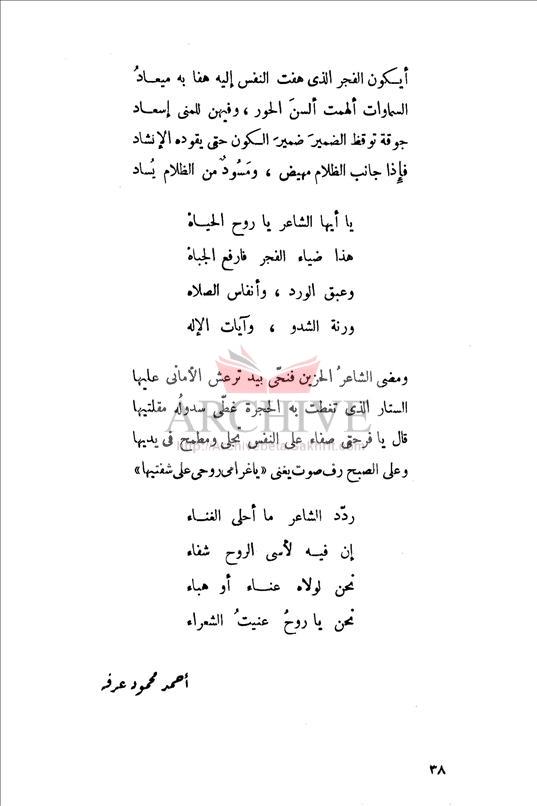 أيكون الفجر الذى هفت النفس إليه هفا به ميعادُ
السماوات ألهمت ألسنَ الحور ، وفيهن للمنى إسعاد
جوقة توقظ الضميرَ ضميرَ الكون حتى يقوده الإنشاد
فإذا جانب الظلام مهيض ، ومَسُودٌ من الظلام يُساد
يا أيها الشاعر يا روح الحياهْ
هذا ضياء الفجر فارفع الجباهْ
وعبق الورد ، وأنفاس الصلاه
ورنة الشدو ، وآيات الإله
ومضى الشاعرُ الحزين فنحّى بيد ترعش الأمانى عليها
الستار الذى تغطت به الحجرة غطّى سدولُه مقلتيها
قال يا فرحتى صفاء على النفس تجلى ومطمح فى يديها
وعلى الصبح رف صوت يغنى «ياغرامى روحى على شفتيها»
ردّد الشاعر ما أحلى الغناء
إن فيه لأسى الروح شفاء
نحن لولاه عناء أو هباء
نحن يا روحُ عنيتُ الشعراء
أحمد محمود عرفه
٣٨
ARCHIVE